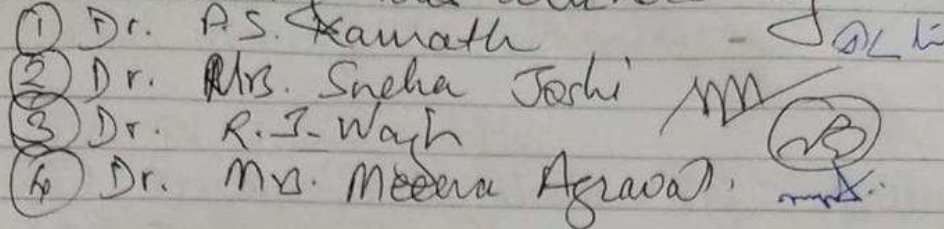 ① Dr. P.S. Kamath
② Dr. Mrs. Sneha Joshi
③ Dr. R.J. Wagh
④ Dr. Mrs. Meena Agrawal.